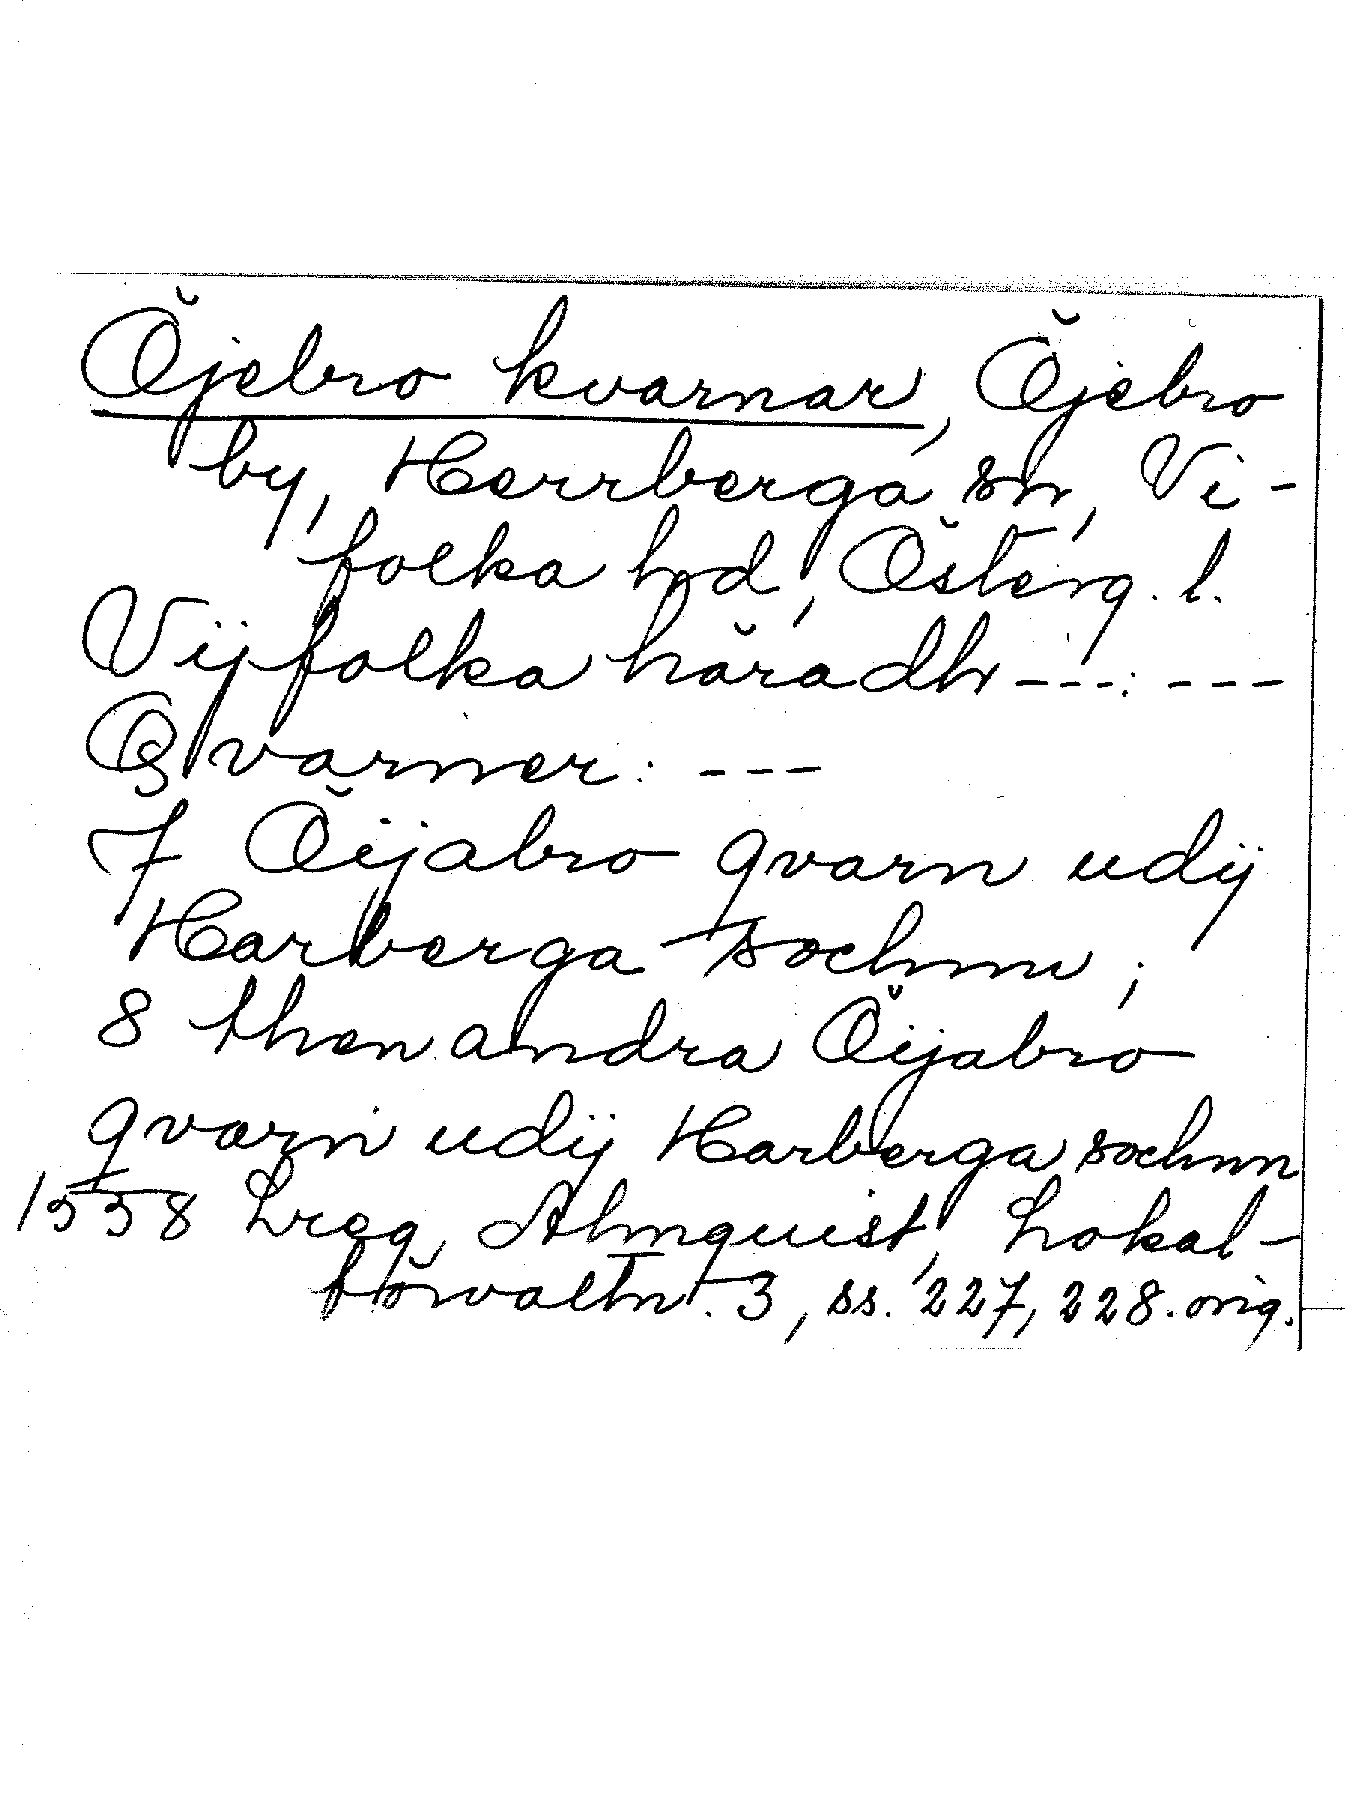 Öjebro kvarnar, Öjebro
by, Herrberga sn, Vi-
folka hd, Österg. l.
Vijfolka häradh ---: ---
Qvarner: ---
7 Öijabro qvarn udij
Harberga sochnn;
8 then andra Öijabro
qvarn udij Harberga sochnn
1558 Lreg, Almquist, Lokal-
förvaltn. 3, ss. 227, 228. orig.